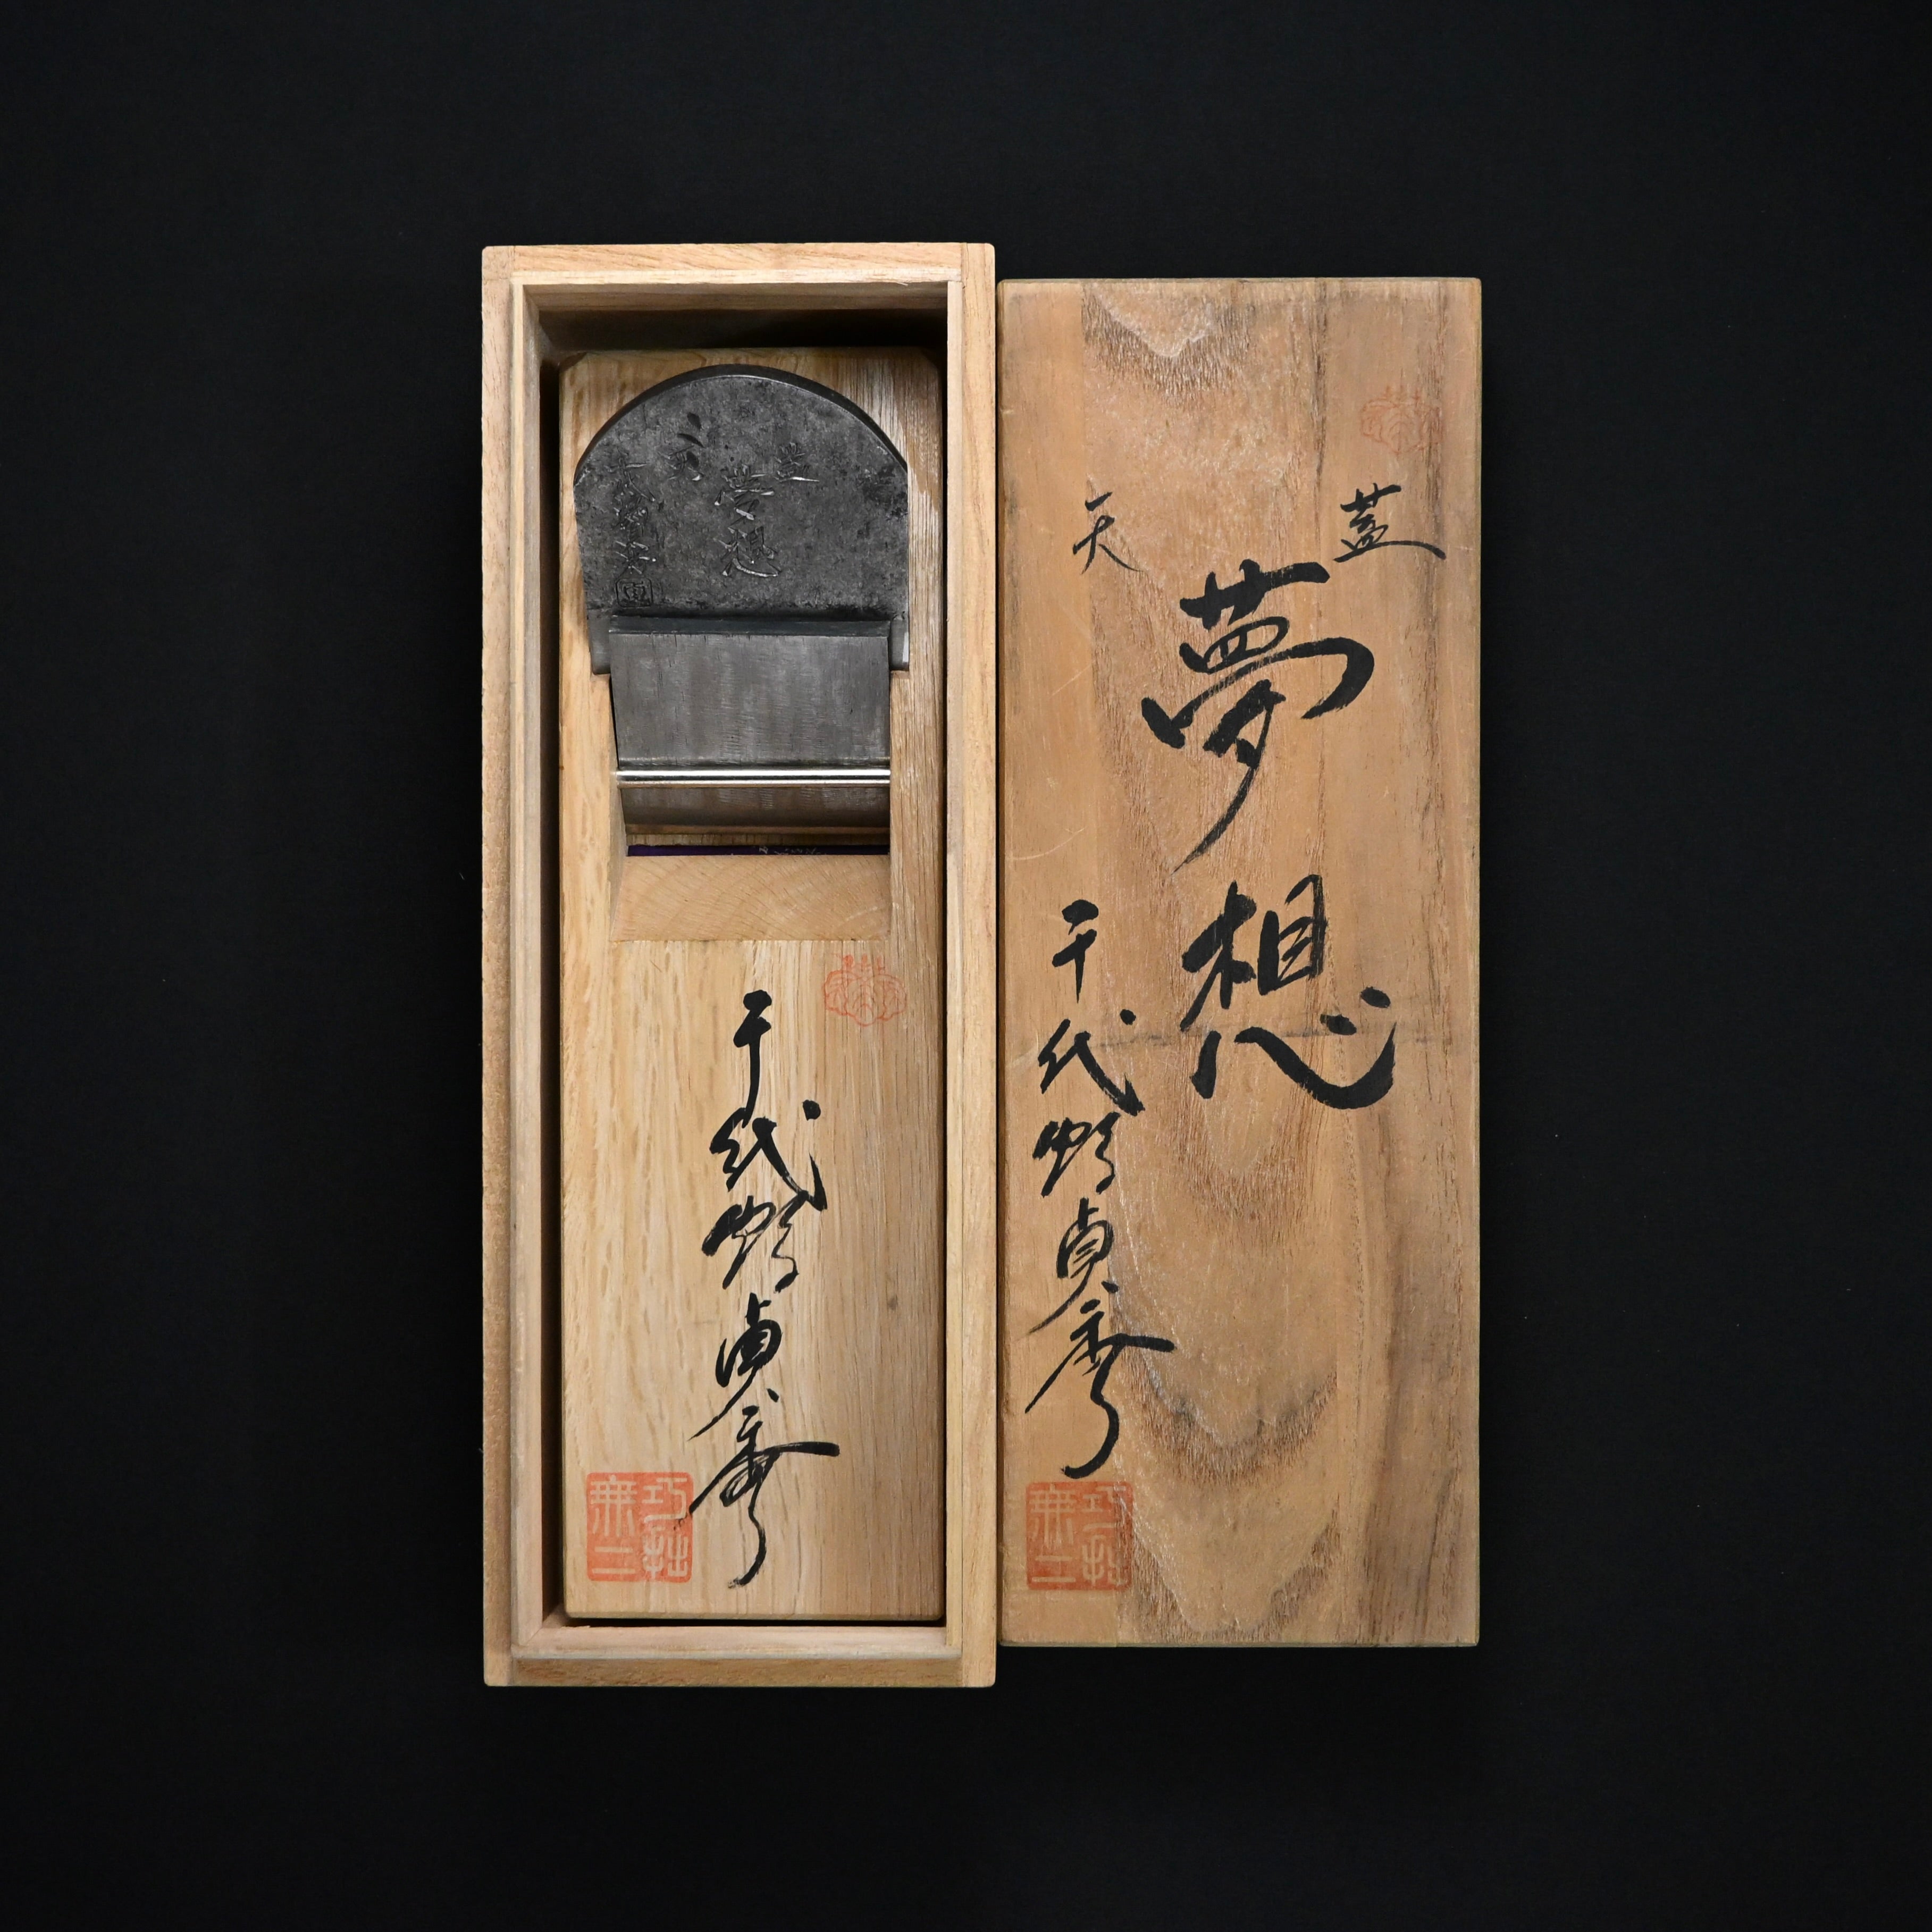 蓋
夢想
天
千代鶴貞秀
巧拙
無二
蓋
夢想
天
千代鶴貞秀
千代鶴貞秀
巧拙
無二